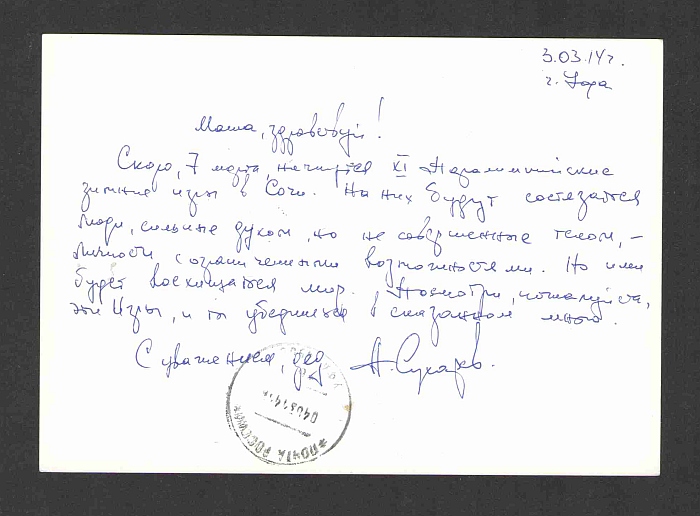 3.03.14г.
г. Уфа
Маша, здравствуй!
Скоро, 7 марта, начнутся XI Параолимпийские
зимние игры в Сочи. На них будут состязаться
люди, сильные духом, но не совершенные телом, –
личности с ограниченными возможностями. Но ими
будет восхищаться мир. Посмотри, пожалуйста,
эти Игры, и ты убедишься в сказанном мною.
С уважением, дед А. Сухарев.
040314
*ПОЧТА РОССИИ*